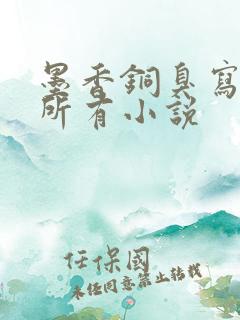 墨香銅臭寫
所有小說
任保國
未經同意禁止轉載